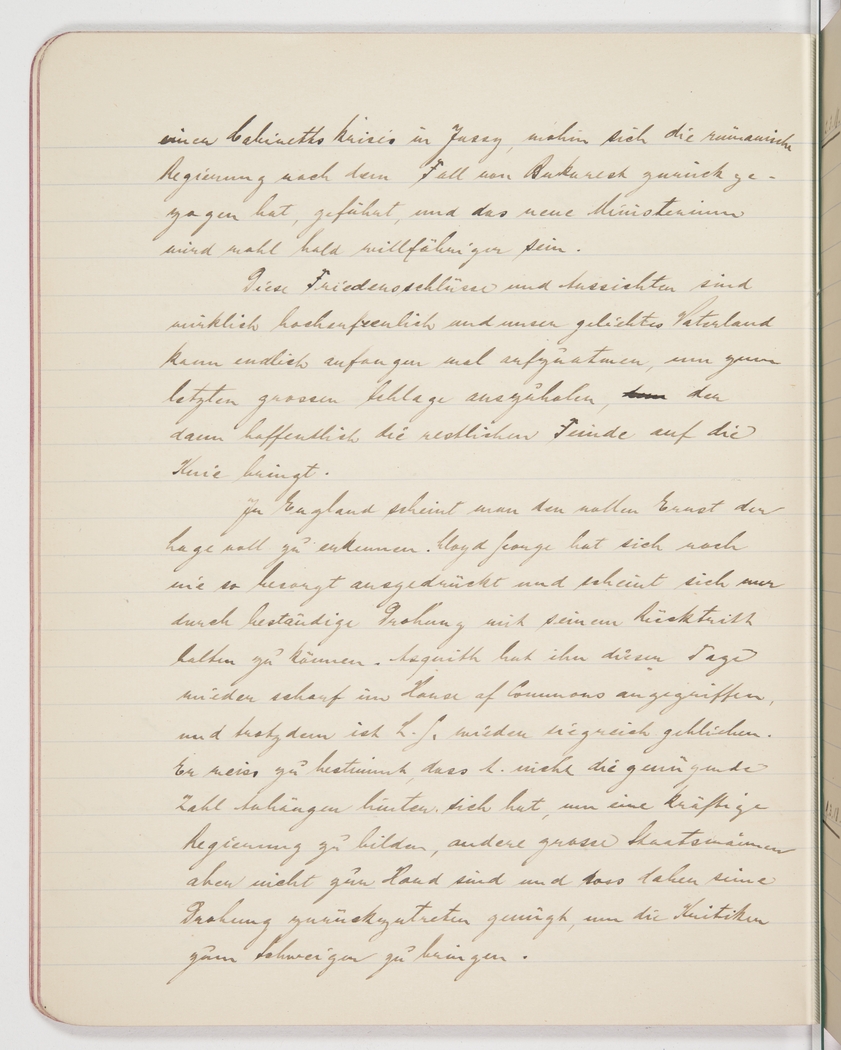 einer Cabinetts krisis in Jassy, wohin sich die rumänische
Regierung nach dem Fall von Bukarest zurückge-
zogen hat, geführt, und das neue Ministerium
wird wohl bald willfähriger sein.
Diese Friedensschlüsse und Aussichten sind
wirklich hocherfreulich und unser geliebtes Vaterland
kann endlich anfangen mal aufzuatmen, um zum
letzten grossen Schlage auszuholen, der
dann hoffentlich die restlichen Feinde auf die
Knie bringt.
In England scheint man den vollen Ernst der
Lage voll zu erkennen. Lloyd George hat sich noch
nie so besorgt ausgedrückt und scheint sich nur
durch beständige Drohung mit seinem Rücktritt
halten zu können. Asquith hat ihn dieser Tage
wieder scharf im House of Commons angegriffen,
und trotzdem ist L. G. wieder siegreich geblieben.
Er weiss zu bestimmt, dass A. nicht die genügende
Zahl Anhänger hinter sich hat, um eine kräftige
Regierung zu bilden, andere grosse Staatsmänner
aber nicht zur Hand sind und dass daher seine
Drohung zurückzutreten genügt, um die Kritiker
zum Schweigen zu bringen.